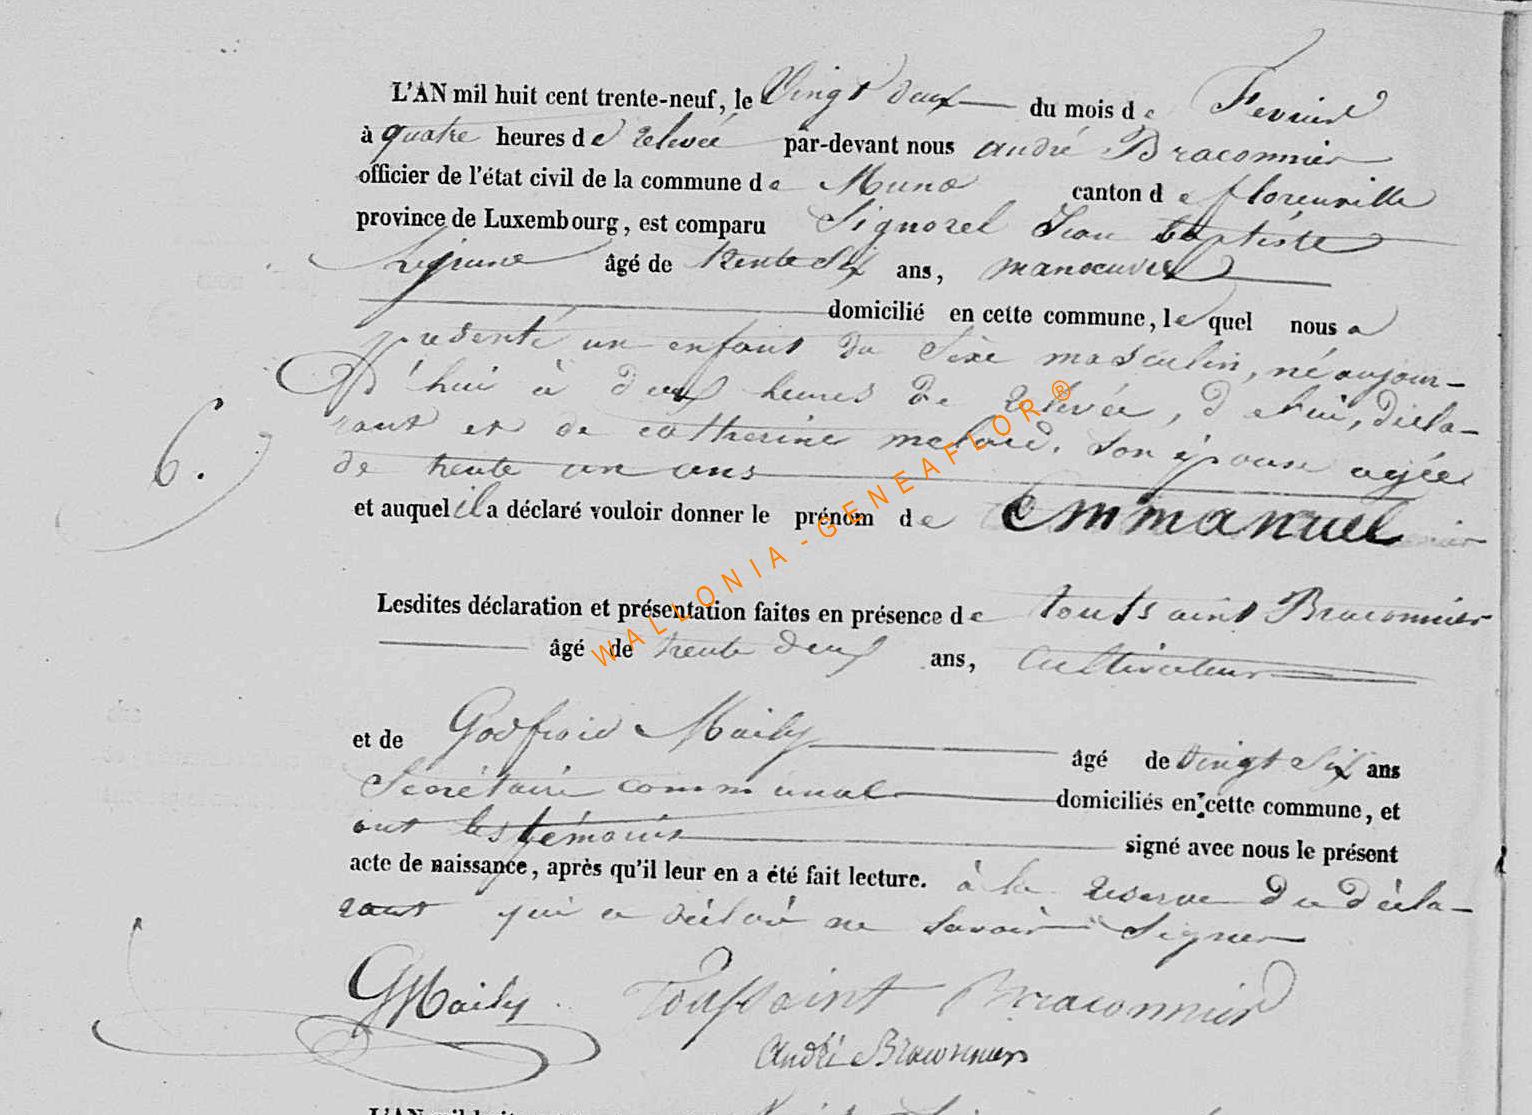 L'AN mil huit cent trente-neuf, le Vingt deux du mois de Fevrier
à quatre heures de relevée par-devant nous andré Braconnier
officier de l'état civil de la commune de Muno canton de florenville
province de Luxembourg, est comparu Signorel Jean baptiste
Lejeune âgé de trente Six ans, manoeuvre
domicilié en cette commune, lequel nous a
presenté un enfant du Sexe masculin, né aujour-
d'hui à deux heures de relevée, de lui, décla-
rant et de catherine son épouse agée
de trente un ans
et auquel il a déclaré vouloir donner le prénom de Emmanuel
6.
Lesdites déclaration et présentation faites en présence de toussaint Braconnier
âgé de trente deux ans, Cultivateur
et de Godfroid Maily âgé de vingt Six ans
Secrétaire communal domiciliés en cette commune, et
ont les témoins signé avec nous le présent
acte de naissance, après qu'il leur en a été fait lecture. à la reserve du décla-
rant qui a déclaré ne Savoir Signer
GMaily Toussaint Braconnier
André Braconnier
L'AN mil huit
WALLONIA-GENEAFLOR®